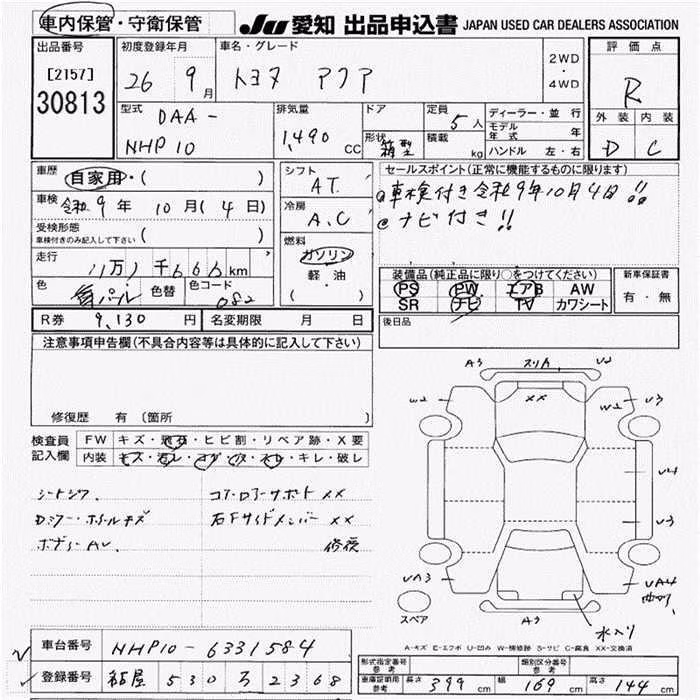 車内保管・守衛保管
JU 愛知 出品申込書 JAPAN USED CAR DEALERS ASSOCIATION
出品番号
[2157]
30813
初度登録年月
26 9月
車名・グレード
トヨタ アクア
2WD
・
4WD
評価点
R
外装 内装
D C
型式
DAA-
NHP10
排気量
1,490 CC
ドア
形状
箱型
定員
5人
積載
kg
ディーラー・並行
モデル年式 年
ハンドル 左・右
車歴
自家用・( )
車検
令和9年10月(4日)
受検形態
車検付きのみ記入して下さい ( )
走行
11万1千666km
色
色替
色コード
082
シフト
AT
冷房
A.C
燃料
ガソリン
軽・油
( )
セールスポイント(正常に機能するものに限ります)
車検付き令和9年10月4日!!
ナビ付き!!
装備品(純正品に限り○をつけてください)
PS PW エアB AW
SR ナビ TV カワシート
新車保証書
有・無
後日品
R券 9,130円
名変期限 月 日
注意事項申告欄(不具合内容等は具体的に記入して下さい)
修復歴 有(箇所
検査員記入欄
FW キズ・飛石・ヒビ割・リペア跡・X要
内装 キズ・汚レ・コゲ・穴・スレ・キレ・破レ
シートシワ、
Dミラー・ホイールキズ
ボデーAU、
コア・ロアーサポート XX
右Fサイドメンバー XX
修復
A3 スリA U2
W2 XX W2 U3
U4
U3
UA3 UA4
曲り
A3
水入り
スペア
A-キズ E-エクボ U-凹み W-補修跡 S-サビ C-腐食 XX-交換済
車台番号 NHP10-6331584
登録番号 530 ろ 2368
形式指定番号
参考
類別区分番号
参考
車庫証明用
参考
長さ 399cm 幅 169cm 高さ 144cm